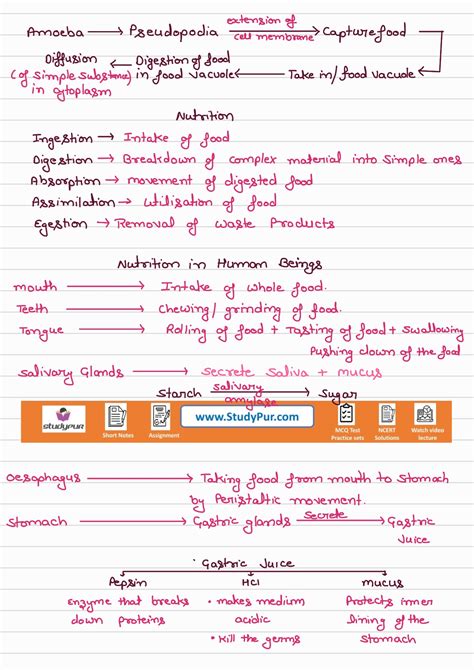 Amoeba → Pseudopodia extension of cell membrane → Capture food
Diffusion ← Digestion of food ← Take in/food vacuole
(of simple substance) in food vacuole
in cytoplasm
Nutrition
Ingestion → Intake of food
Digestion → Breakdown of complex material into simple ones
Absorption → movement of digested food
Assimilation → Utilisation of food
Egestion → Removal of waste Products
Nutrition in Human Beings
mouth → Intake of whole food.
Teeth → Chewing/grinding of food.
Tongue → Rolling of food + Tasting of food + swallowing
Pushing down of the food
Salivary Glands → secrete Saliva + mucus
Starch salivary amylase → Sugar
studypur
Short Notes
Assignment
www.StudyPur.com
MCQ Test
Practice sets
NCERT
Solutions
Watch video
lecture
oesophagus → Taking food from mouth to Stomach
by Peristaltic movement.
Stomach → Gastric glands Secrete → Gastric
Juice
Gastric Juice
Pepsin HCl mucus
Enzyme that breaks • makes medium Protects inner
down proteins acidic lining of the
• Kill the germs Stomach